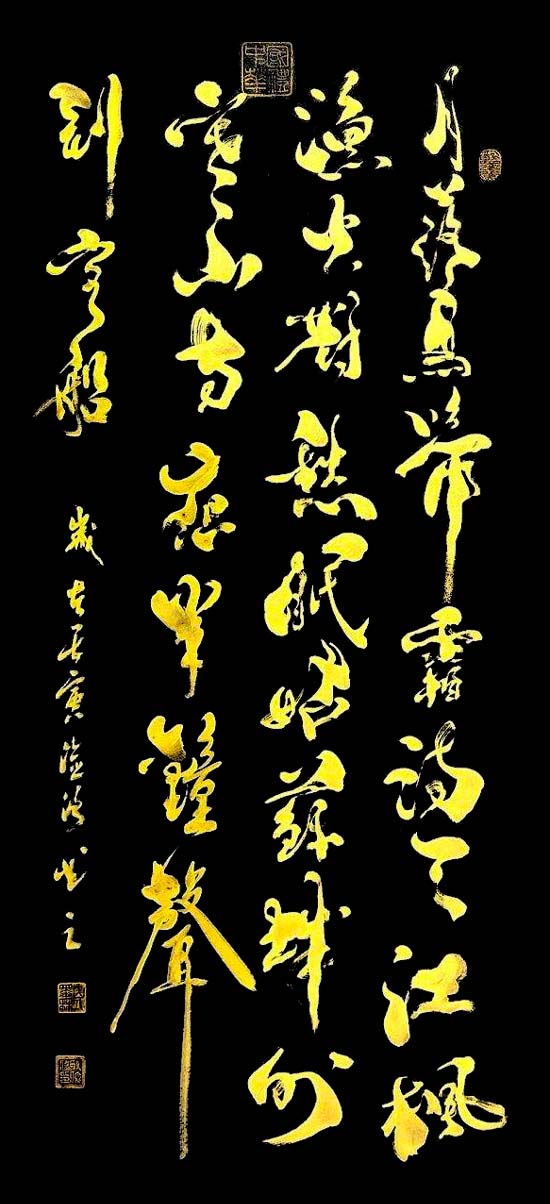 國禮中華
月落烏啼霜滿天江楓
漁火對愁眠姑蘇城外
寒山寺夜半鐘聲
到客船
歲在壬寅書之